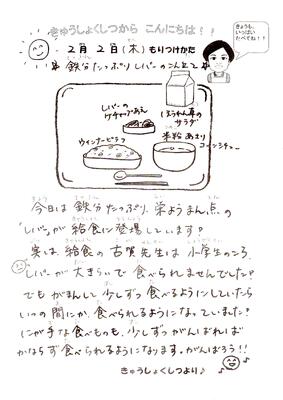 きゅうしょくしつから こんにちは!!
きょうも、
いっぱい
たべてね!!
2月2日(木) もりつけかた
鉄分たっぷり レバーのこんだて
レバーの
ケチャップあえ
ほうれん草の
サラダ
ウインナーピラフ
米粉 あさり
コーンシチュー
今日は 鉄分たっぷり、栄ようまん点の
「レバー」が 給食に登場しています!
実は、給食の 古賀先生は 小学生のころ、
レバーが 大きらいで 食べられませんでした?
でもがまんして 少しずつ 食べるようにしていたら
いつの間にか、食べられるようになっていました?
にが手な食べものも、少しずつがんばれば
かならず食べられるようになります。がんばろう!!
きゅうしょくしつより♪